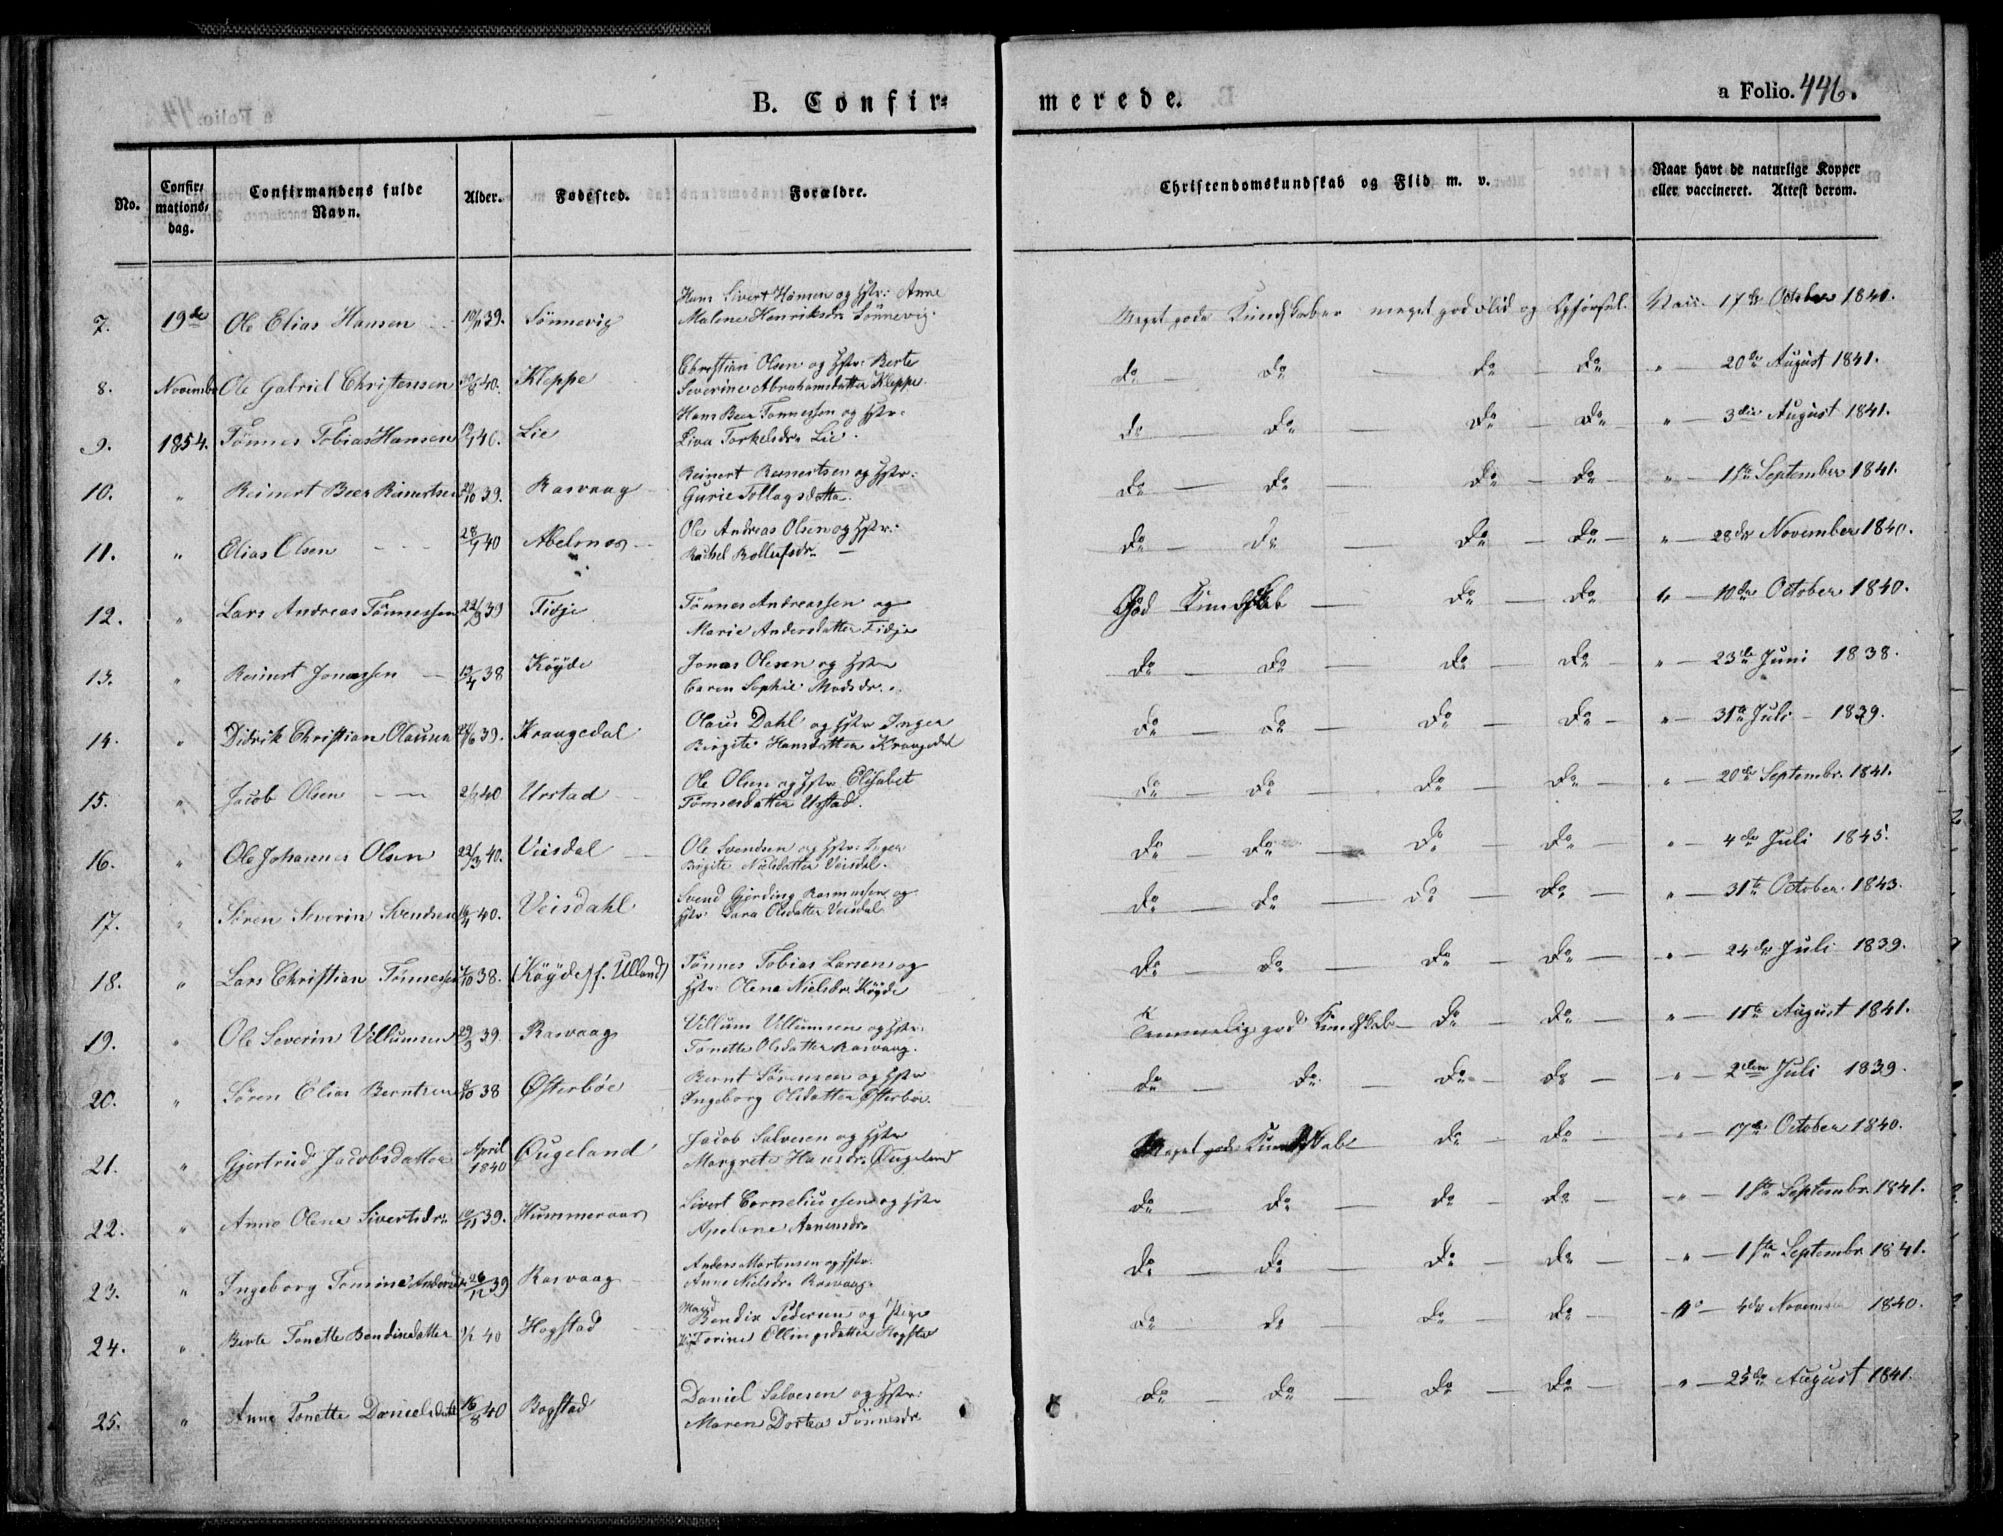 B. Confirmerede.
a Folio. 446.
No.
Confirmations-dag.
Confirmandens fulde Navn.
Alder.
Fødested.
Forældre.
Christendomskundskab og Flid m. v.
Naar havt de naturlige Kopper eller vaccineret. Attest derom.
7. 19de Ole Elias Hansen 39. Sönnevig Hans Sivert Hansen og Hstr: Anne
Malene Henriksdr Sönnevig. Meget gode Kundskaber meget god Flid og Opførsel. Vacc. 17de October 1840.
8. Novembr Ole Gabriel Christensen 40. Kleppe Christian Olsen og Hstr: Berte
Severine Abrahamsdatter Kleppe. do — do — do — do " — 20de August 1841.
9. 1854. Tönnes Tobias Hansen 40. Lie Hans Beer Tønnessen og Hstr:
Siva Torkelsdr Lie. do — do — do — do " — 3die August 1841.
10. " Reinert Beer Reinertsen 39. Rasvaag Reinert Reinertsen og Hstr:
Gurie Tollagsdatter. do — do — do — do " — 1ste September 1841.
11. " Elias Olsen 40 Abelsnes Ole Andreas Olsen og Hstr:
Rachel Rollufsdr — do — do — do — do — " — 28de November 1840.
12. " Lars Andreas Tönnessen 22/9 39 Fidje Tönnes Andreassen og
Marie Andersdatter Fidje God Kundskab — do — do " — 10de October 1840.
13. " Reinert Jonassen — 38 Köyde Jonas Olsen og Hstr
Caren Sophie Madsdr. do — do — do — do — " — 23de Juni 1838.
14. " Didrik Christian Olausen 39. Kraagedal Olaus Dahl og Hstr Inger
Birgite Hansdatter Kraagedal do — do — do — do — " — 31te Juli — 1839.
15. " Jacob Olsen 40 Urstad Ole Olsen og Hstr Elisabet
Tönnesdatter Urstad. do — do — do — do — " — 20de Septembr. 1841.
16. " Ole Johannes Olsen 23/3 40. Veisdal Ole Svendsen og Hstr: Inger
Birgite Nielsdatter Veisdal. do — do — do — do — " — 4de Juli 1845.
17. " Sören Severin Svendsen 40. Veisdahl Svend Gjerding Rasmussen og
Hstr: Sara Olsdatter Veisdal do — do — do — do — " — 31te October 1843.
18. " Lars Christian Tönnessen 38. (Köyde f. Ulland) Tönnes Tobias Larsen og
Hstr: Olena Nielsdr Köyde do — do — do — do — " — 24de Juli 1839.
19. " Ole Severin Villumsen 39. Rasvaag Villum Villumsen og Hstr:
Tonette Olsdatter Rasvaag. Temmelig god Kundskab — do — do — " — 11te August 1841.
20. " Sören Elias Berntsen 38 Østerböe Bernt Sörensen og Hstr
Ingeborg Olsdatter Østerböe. do — do — do — do — " — 2den Juli 1839.
21. " Gjertrud Jacobsdatter April 1840 Øugeland Jacob Salvesen og Hstr
Margrete Hansdr. Øugeland Meget gode Kundskab — do — do — " — 17de October 1840.
22. " Anne Olene Sivertsdr. 39. Hummeraas Sivert Corneliussen og Hstr
Apelone Aanensdr do — do — do — do — " — 1ste Septembr. 1841.
23. " Ingeborg Tomine Andersdr 26/12 39 Rasvaag Anders Mortensen og Hstr.
Anne Nielsdr. Rasvaag. do — do — do — do — " — 1ste Septembr 1841.
24. " Berte Tonette Bendixsdatter 40 Hogstad Bendix Pedersen og Pige
Torine Ellingsdatter Hogstad do — do — do — do — 4de November 1840.
25. " Anne Tonette Danielsdatt 16/8 40 Bogstad Daniel Salvesen og Hstr:
Maren Dortea Tönnesdr do — do — do — do — " — 25de August 1841.